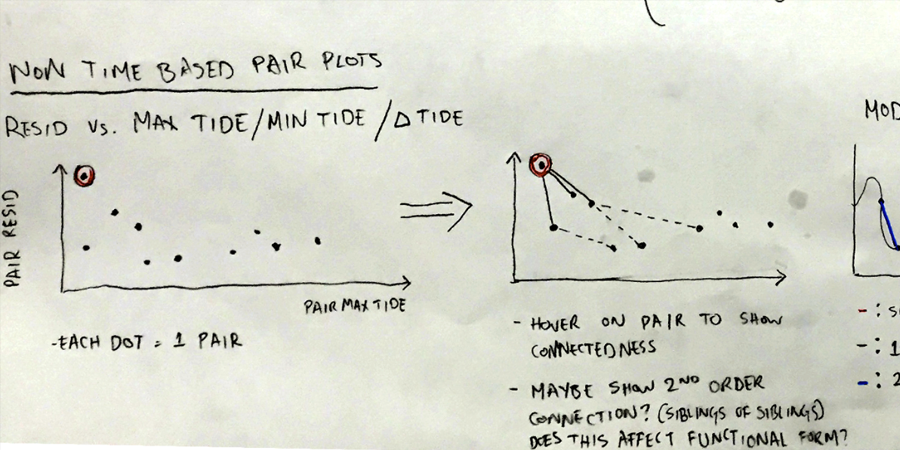 NON TIME BASED PAIR PLOTS
RESID VS. MAX TIDE/MIN TIDE/Δ TIDE
PAIR RESID
PAIR MAX TIDE
-EACH DOT = 1 PAIR
- HOVER ON PAIR TO SHOW
CONNECTEDNESS
- MAYBE SHOW 2ND ORDER
CONNECTION? (SIBLINGS OF SIBLINGS)
DOES THIS AFFECT FUNCTIONAL FORM?
MOD
- : S
- : 1
- : 2